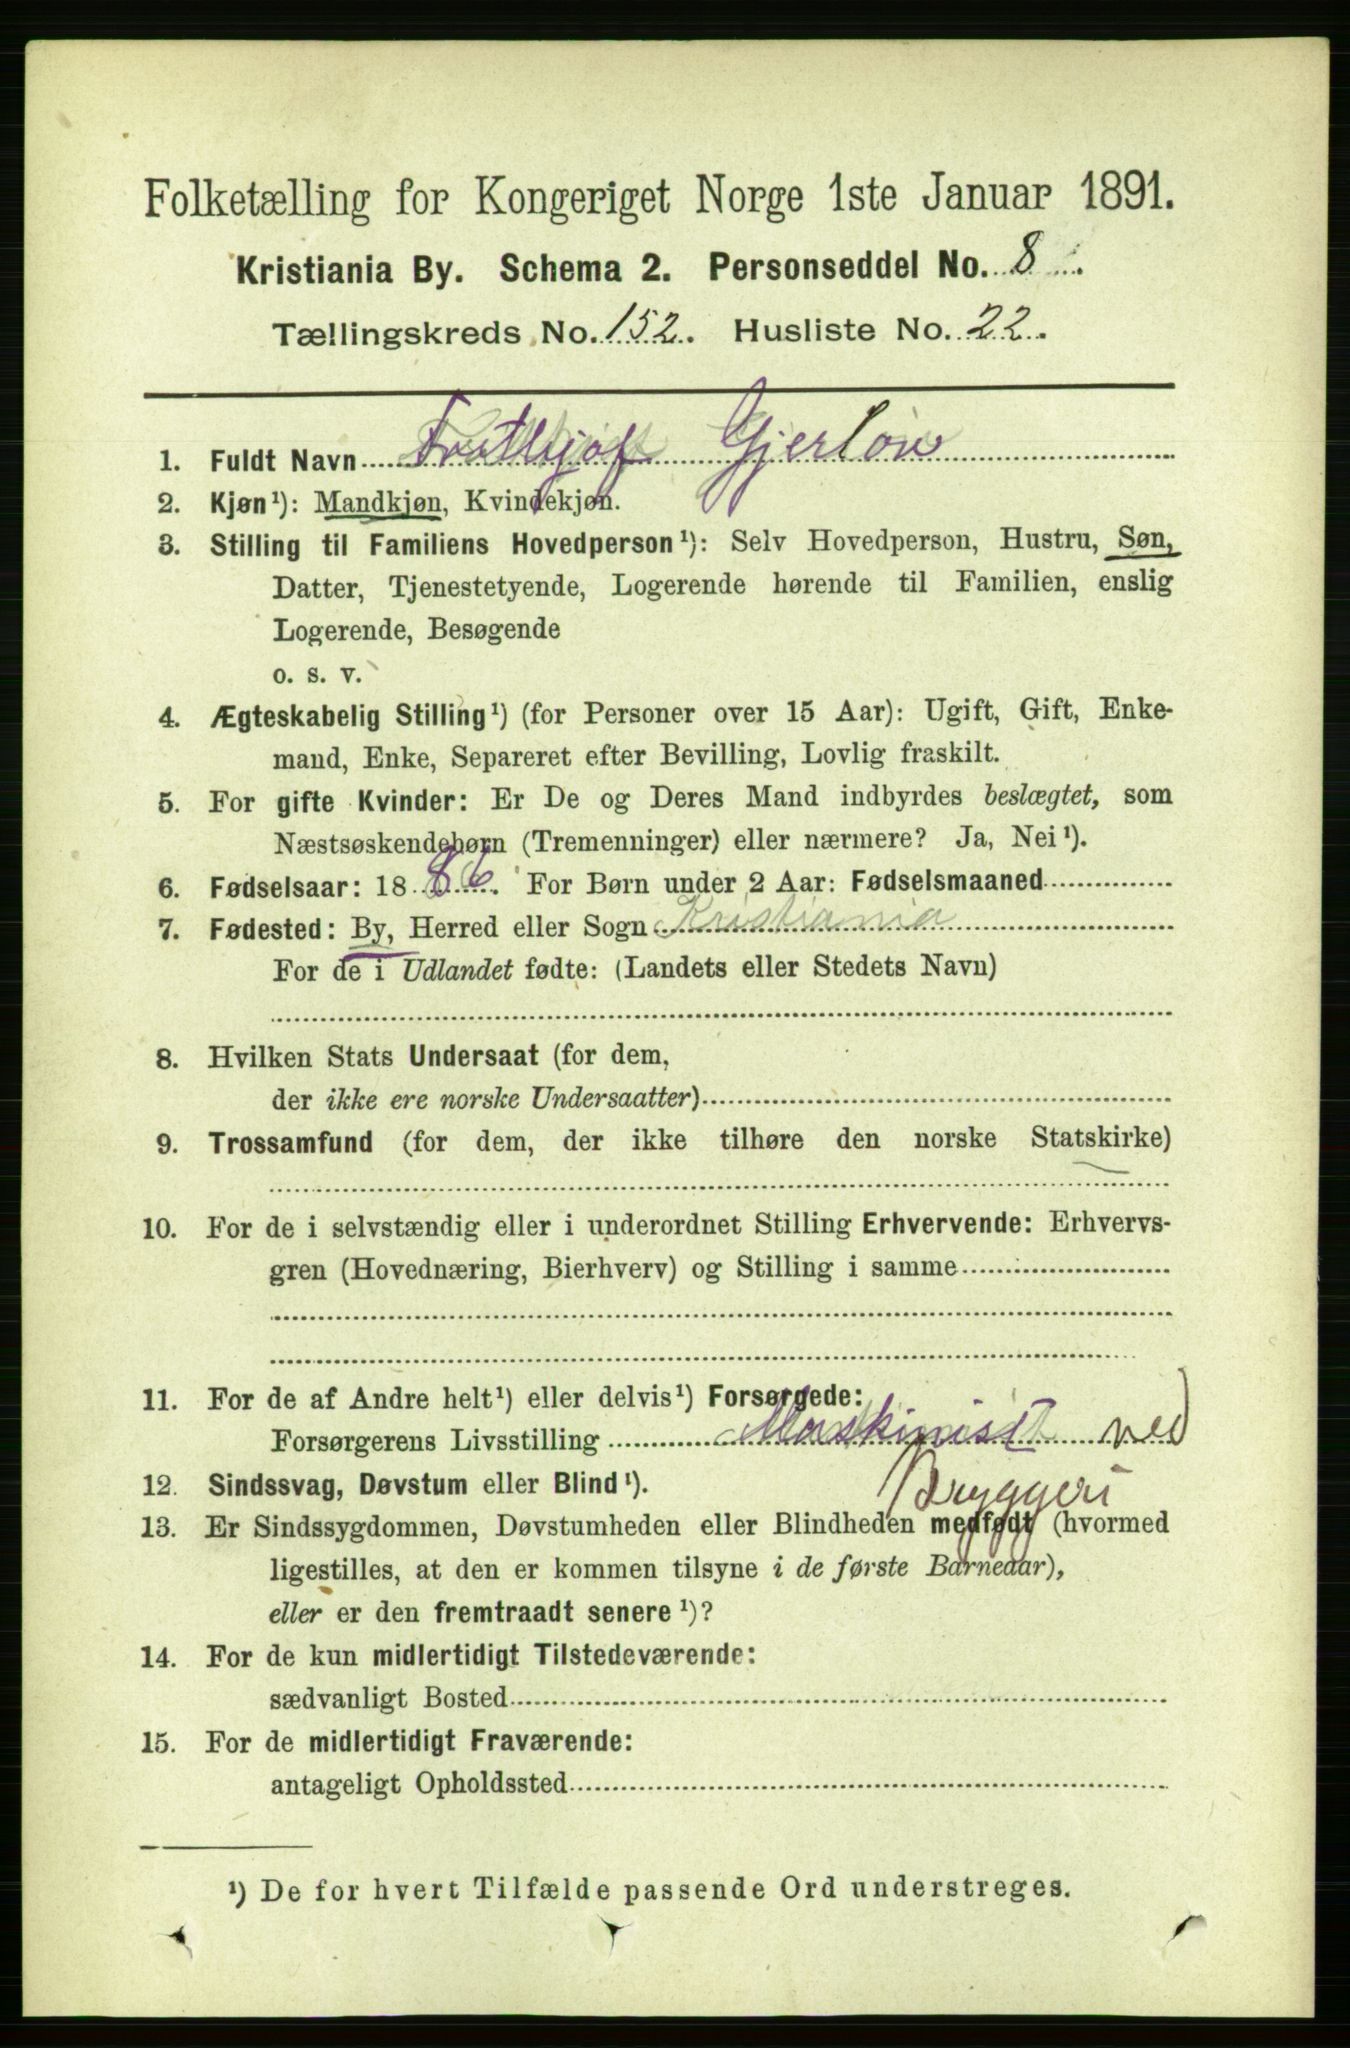 Folketælling for Kongeriget Norge 1ste Januar 1891.
Kristiania By. Schema 2. Personseddel No. 8.
Tællingskreds No. 152. Husliste No. 22.
1. Fuldt Navn Frithjof Gjerløw
2. Kjøn¹): Mandkjøn, Kvindekjøn.
3. Stilling til Familiens Hovedperson¹): Selv Hovedperson, Hustru, Søn,
Datter, Tjenestetyende, Logerende hørende til Familien, enslig
Logerende, Besøgende
o. s. v.
4. Ægteskabelig Stilling¹) (for Personer over 15 Aar): Ugift, Gift, Enke-
mand, Enke, Separeret efter Bevilling, Lovlig fraskilt.
5. For gifte Kvinder: Er De og Deres Mand indbyrdes beslægtet, som
Næstsøskendebørn (Tremenninger) eller nærmere? Ja, Nei¹).
6. Fødselsaar: 1886. For Børn under 2 Aar: Fødselsmaaned
7. Fødested: By, Herred eller Sogn Kristiania
For de i Udlandet fødte: (Landets eller Stedets Navn)
8. Hvilken Stats Undersaat (for dem,
der ikke ere norske Undersaatter)
9. Trossamfund (for dem, der ikke tilhøre den norske Statskirke)
10. For de i selvstændig eller i underordnet Stilling Erhvervende: Erhvervs-
gren (Hovednæring, Bierhverv) og Stilling i samme
11. For de af Andre helt¹) eller delvis¹) Forsørgede:
Forsørgerens Livsstilling Maskinist ved
Bryggeri
12. Sindssvag, Døvstum eller Blind¹).
13. Er Sindssygdommen, Døvstumheden eller Blindheden medfødt (hvormed
ligestilles, at den er kommen tilsyne i de første Barneaar),
eller er den fremtraadt senere¹)?
14. For de kun midlertidigt Tilstedeværende:
sædvanligt Bosted
15. For de midlertidigt Fraværende:
antageligt Opholdssted
¹) De for hvert Tilfælde passende Ord understreges.